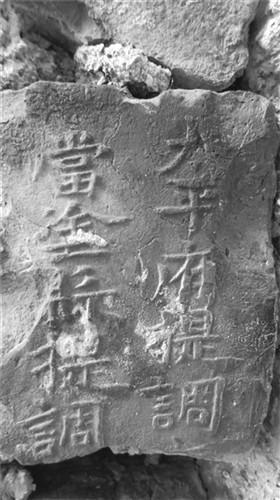 太平府提調
當塗縣提調